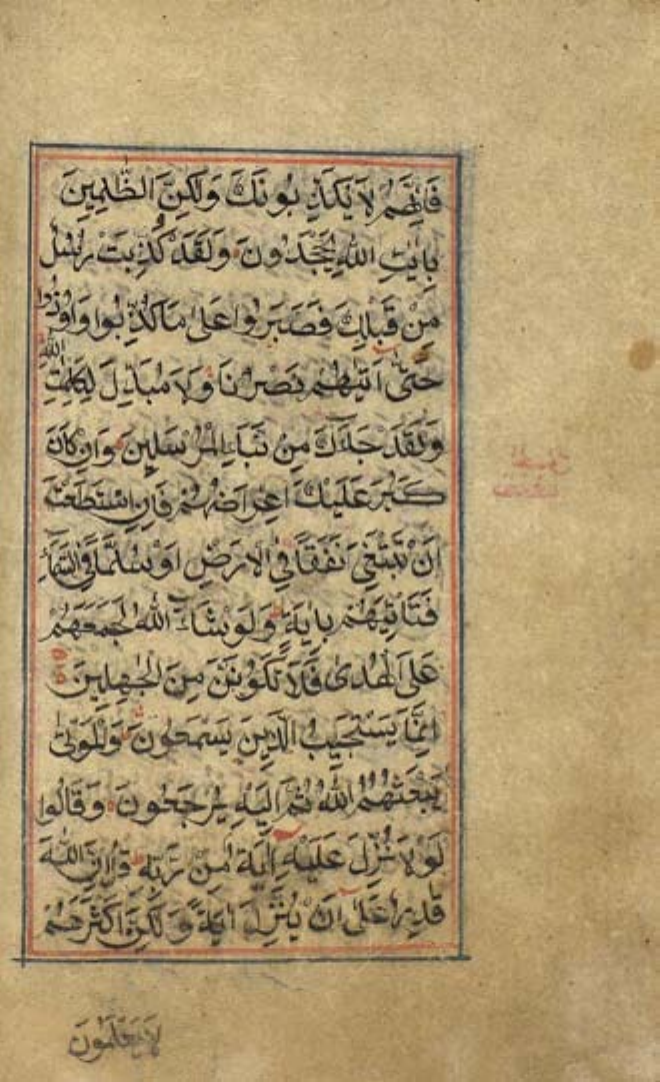 فَاِنَّهُمْ لَا يُكَذِّبُونَكَ وَلَكِنَّ الظّٰلِمِينَ
بِاٰيٰتِ اللّٰهِ يَجْحَدُونَ وَلَقَدْ كُذِّبَتْ رُسُلٌ
مِنْ قَبْلِكَ فَصَبَرُوا عَلٰى مَا كُذِّبُوا وَاُوذُوا
حَتّٰى اَتٰيهُمْ نَصْرُنَا وَلَا مُبَدِّلَ لِكَلِمٰتِ اللّٰهِ
وَلَقَدْ جَاءَكَ مِنْ نَبَاِئ الْمُرْسَلِينَ وَاِنْ كَانَ
كَبُرَ عَلَيْكَ اِعْرَاضُهُمْ فَاِنِ اسْتَطَعْتَ
اَنْ تَبْتَغِىَ نَفَقًا فِى الْاَرْضِ اَوْ سُلَّمًا فِى السَّمَاءِ
فَتَاْتِيَهُمْ بِاٰيَةٍ وَلَوْ شَاءَ اللّٰهُ لَجَمَعَهُمْ
عَلَى الْهُدٰى فَلَا تَكُونَنَّ مِنَ الْجٰهِلِينَ
اِنَّمَا يَسْتَجِيبُ الَّذِينَ يَسْمَعُونَ وَالْمَوْتٰى
يَبْعَثُهُمُ اللّٰهُ ثُمَّ اِلَيْهِ يُرْجَعُونَ وَقَالُوا
لَوْلَا نُزِّلَ عَلَيْهِ اٰيَةٌ مِنْ رَبِّهِ قُلْ اِنَّ اللّٰهَ
قَادِرٌ عَلٰى اَنْ يُنَزِّلَ اٰيَةً وَلٰكِنَّ اَكْثَرَهُمْ
لَا يَعْلَمُونَ